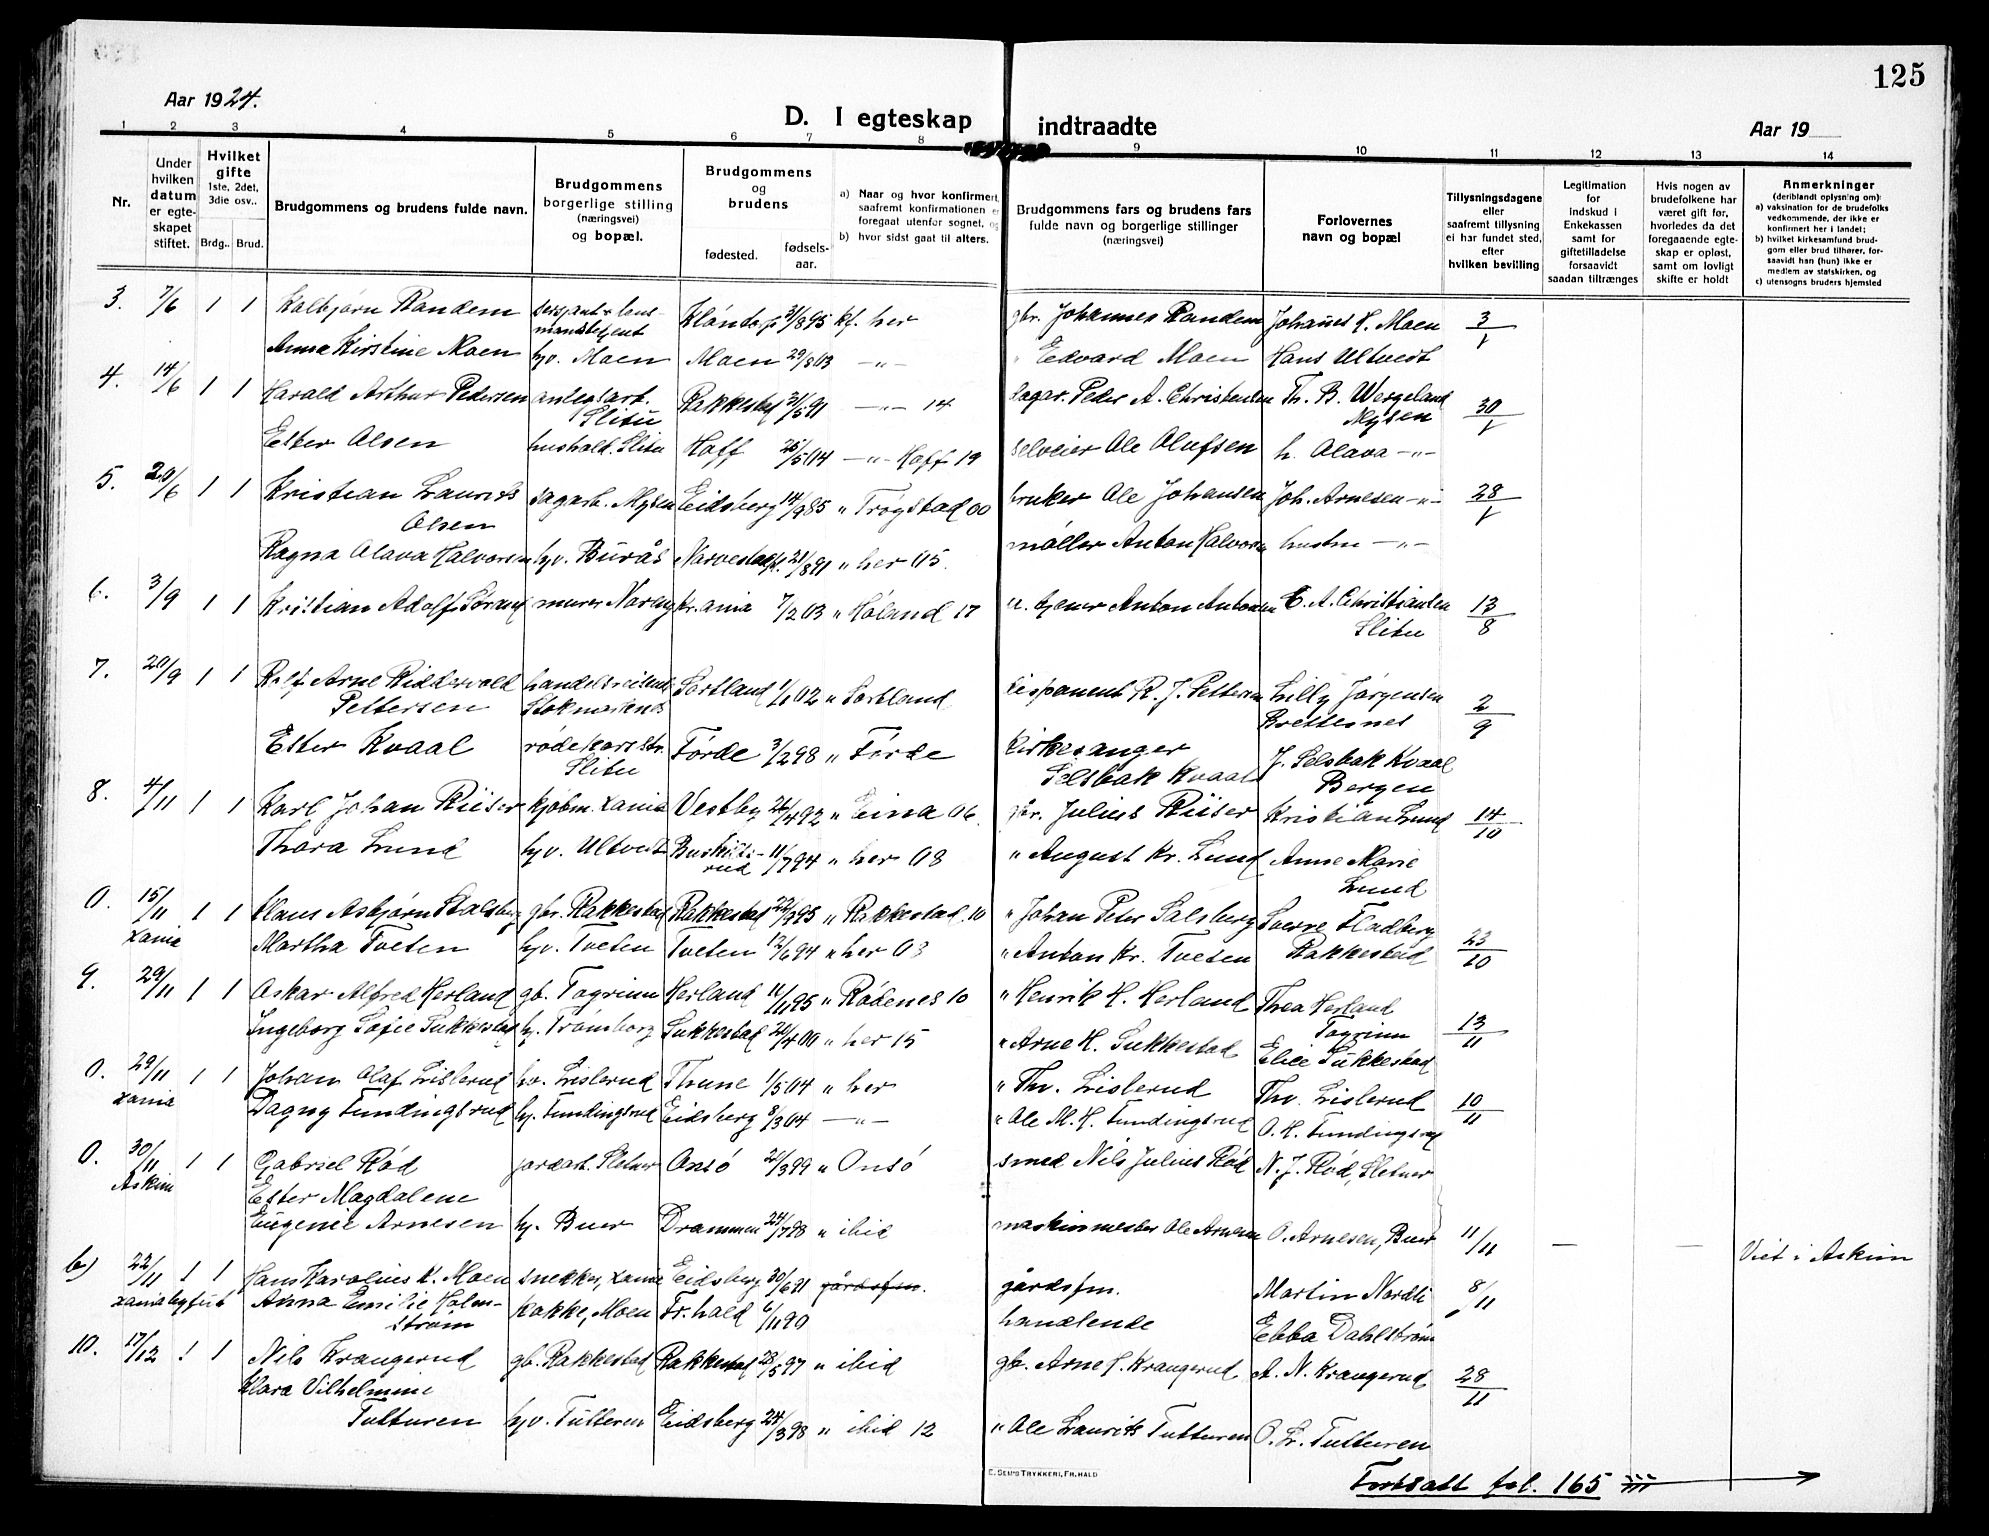 125
Aar 1924.
D. I egteskap indtraadte
Aar 19
1 2 3 4 5 6 7 8 9 10 11 12 13 14
Nr.
Under hvilken datum er egteskapet stiftet.
Hvilket gifte 1ste, 2det, 3die osv..
Brdg.. Brud.
Brudgommens og brudens fulde navn.
Brudgommens borgerlige stilling (næringsvei) og bopæl.
Brudgommens og brudens
fødested. fødselsaar.
a) Naar og hvor konfirmert, saafremt konfirmationen er foregaat utenfor sognet, og
b) hvor sidst gaat til alters.
Brudgommens fars og brudens fars fulde navn og borgerlige stillinger (næringsvei)
Forlovernes navn og bopæl
Tillysningsdagene eller saafremt tillysning ei har fundet sted, efter hvilken bevilling
Legitimation for Indskud i Enkekassen samt for giftetilladelse forsaavidt saadan tiltrænges
Hvis nogen av brudefolkene har været gift før, hvorledes da det foregaaende egteskap er opløst, samt om lovligt skifte er holdt
Anmerkninger (deriblandt oplysning om:
a) vaksination for de brudefolks vedkommende, der ikke er konfirmert her i landet;
b) hvilket kirkesamfund brudgom eller brud tilhører, forsaavidt han (hun) ikke er medlem av statskirken, og
c) utensogns bruders hjemsted
3. 7/6 1 1 Kolbjørn Randem sersjant & lensmandsbetjent 31/8 95 kf. her gbr. Johannes Randem Johañes H. Moen 3/
Anna Kirstine Moen hjv. Moen Moen 29/8 03 -"- " Edvard Moen Hans Ultvedt
4. 14/6 1 1 Harald Arthur Pedersen anlegsarb. Slitu Rakkestad 31/5 91 -"- 14 sagar. Peder A. Christensen Th. B. Wergeland Mysen 30/
Ester Olsen hushold. Slitu Hoff 25/5 04 -"- Hoff 19 selveier Ole Olufsen h. Olava -"-
5. 20/6 1 1 Kristian Laurits Olsen sagarb. Mysen Eidsberg 14/9 85 " Trøgstad 00 bruker Ole Johansen Joh. Arnesen -"- 28/
Ragna Olava Halvorsen hjv. Burås 21/8 91 " her 05. møller Anton Halvorsen hustru -"-
6. 3/9 1 1 Kristian Adolf murer Kr.ania 7/2 03 " Høland 17 Anton Antonsen C. A. Christiansen Slitu 13/8
7. 20/9 1 1 Rolf Arne Riddervold Pettersen handelsreisende Stokmarknes Sortland 02 " Sortland disponent R. J. Pettersen Lilly Jørgensen Brettesnes 2/9
Ester Kvaal rodekorsstr. Slitu Førde 3/2 98 " Førde kirkesanger Selsbak Kvaal J. Selsbak Kvaal Bergen
8. 4/11 1 1 Karl Johan Riiser kjøbm. Xania Vestby 26/4 92 " Eina 06. gbr. Julius Riiser Kristian Lund 14/10
Thora Lund hjv. Ultvedt Buskitsrud 11/7 94 " her 08 " August Kr. Lund Anne Marie Lund
0. 15/11 Xania 1 1 Hans Asbjørn Salsberg gbr. Rakkestad Rakkestad 22/9 95 " Rakkestad 10 " Johan Peter Salsberg Sverre Fladberg Rakkestad 23/10
Martha Tveten hjv. Tveten Tveten 12/6 94 " her 03 " Anton Kr. Tveten
9. 29/11 1 1 Oskar Alfred Herland gb. Togrinn Herland 11/11 95 " Rødenes 10 " Henrik H. Herland Thea Herland Togrinn 13/11
Ingeborg Sofie Sukkestad hj. Trømborg Sukkestad 26/4 00 " her 15 " Arne H. Sukkestad Elise Sukkestad
0. 29/11 Xania 1 1 Johan Olaf Lislerud hv. Lislerud Thune 1/5 04 " her " Thv. Lislerud Thv. Lislerud 10/11
Dagny Fundingsrud hj. Fundingsrud Eidsberg 8/3 04 -"- " Ole M. H. Fundingsrud O. H. Fundingsrud
0. 30/11 Askim 1 1 Gabriel Rød jordarb. Sletner Onsø 21/3 99 " Onsø smed Nils Julius Rød N. J. Rød, Sletner
Ester Magdalene Eugenie Arnesen hj. Buer Drammen 24/7 98 " ibid maskinmester Ole Arnesen O. Arnesen, Buer 11/11 — — Viet i Askim
b) 22/11 Xania 1 1 Hans Karolius K. Moen snekker, Xania Eidsberg 30/6 91 gårdsfm. gårdsfm. Martin Nordli 8/11
Anna Emilie Holmstrøm kokke, Moen Fr.hald 6/11 90 handlende Ebba Dahlstrøm
10. 17/12 1 1 Nils Krangerud gb. Rakkestad Rakkestad 28/5 97 " ibid gb. Arne H. Krangerud A. N. Krangerud 28/11
Klara Vilhelmine Tutturen hjv. Tutturen Eidsberg 24/3 98 " ibid 12 " Ole Laurits Tutturen O. L. Tutturen
E. SEM'S TRYKKERI, FR.HALD
Fortsatt fol. 165